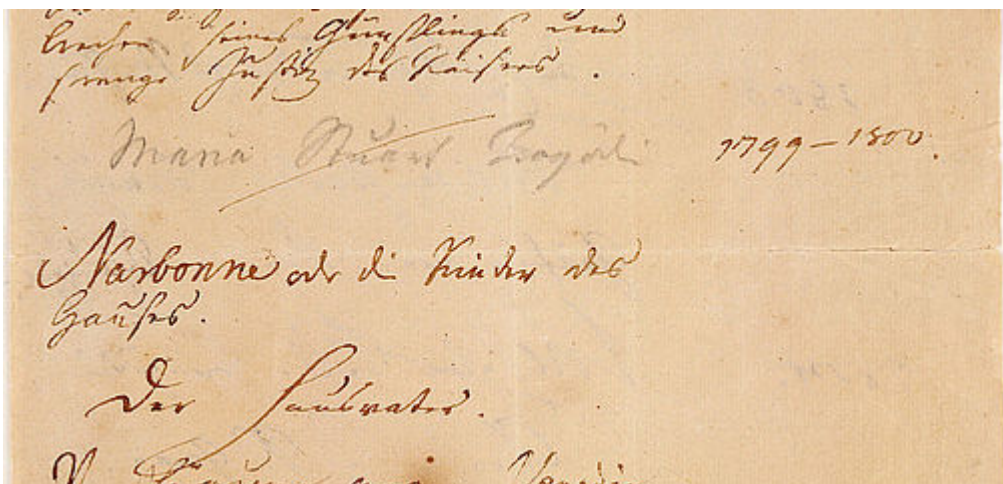 brechen seines Günstlings und
strenge Justiz des Kaisers.
Maria Stuart Tragödie 1799–1800.
Narbonne oder die Kinder des
Hauses.
Der Hausvater.